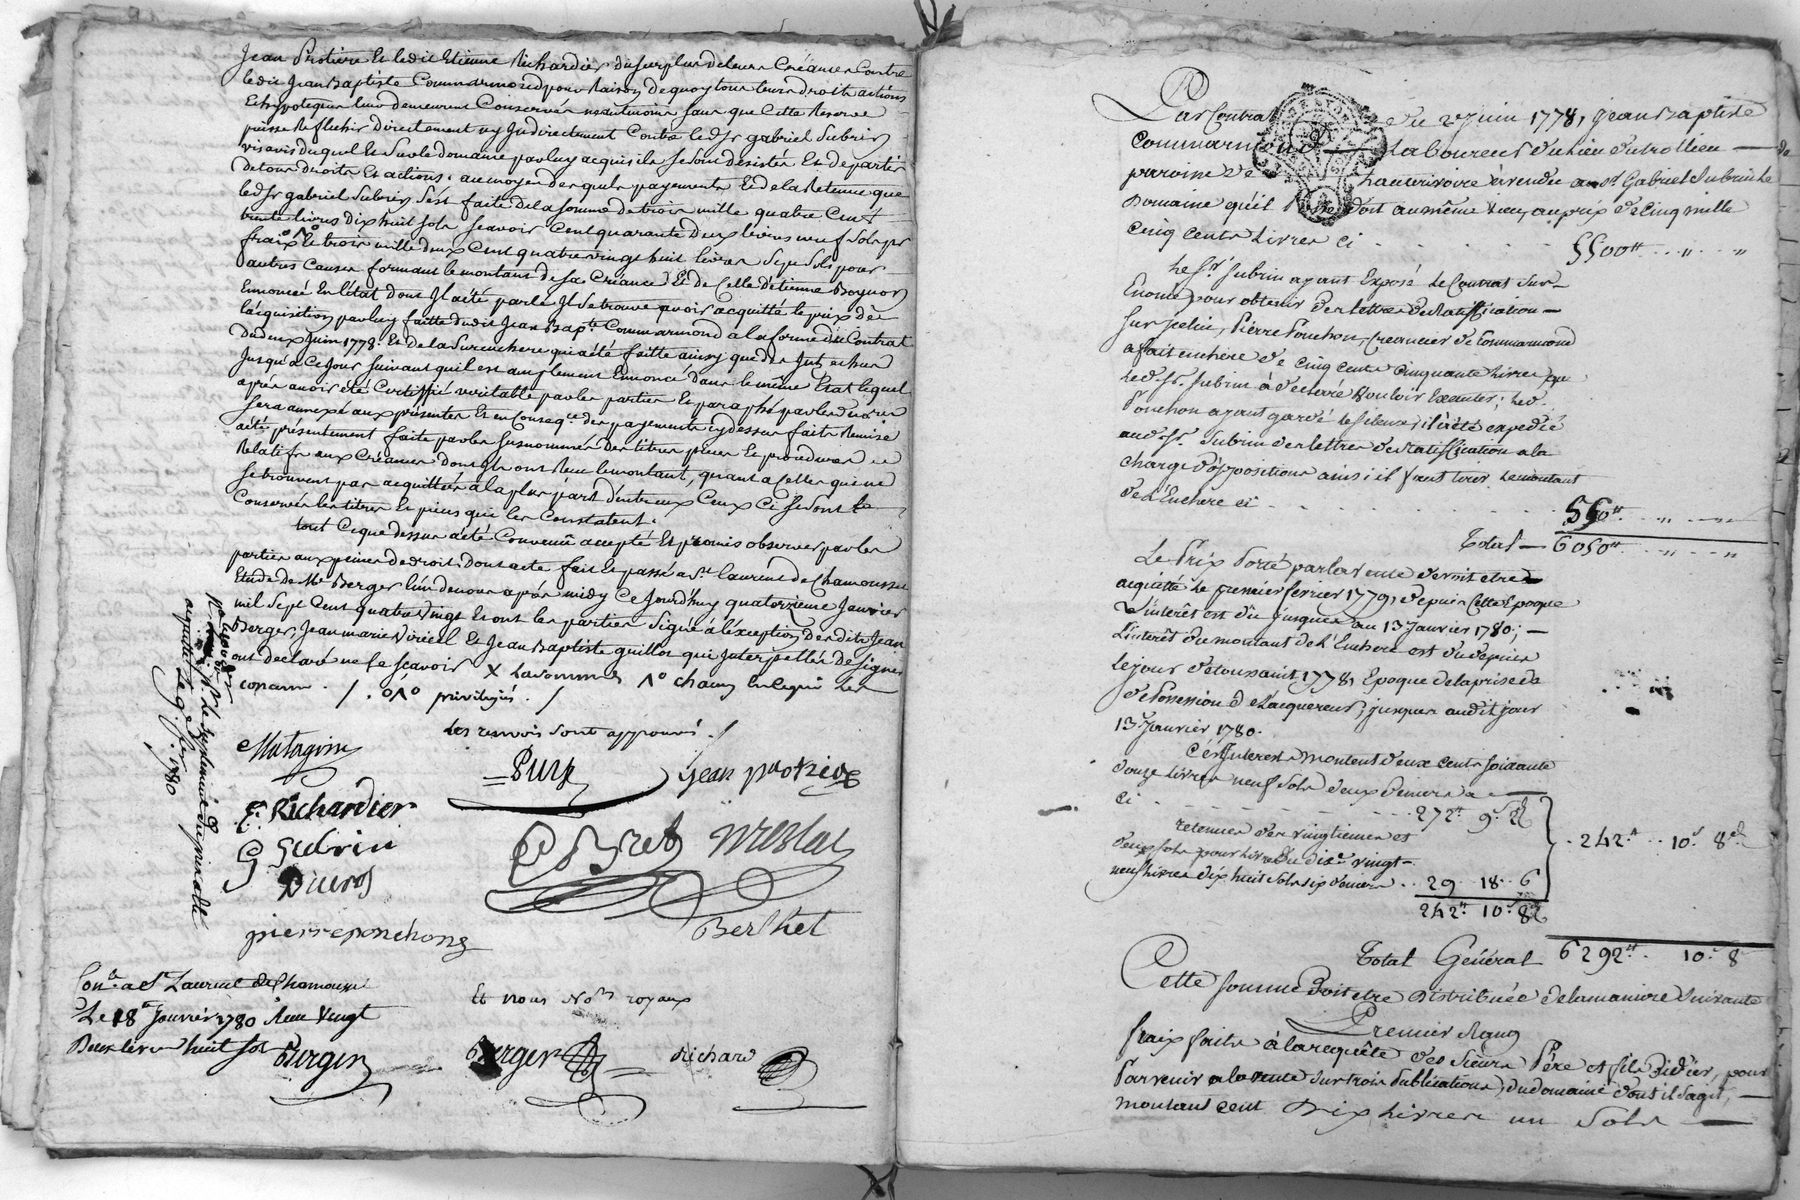 Jean Protiere Et ledit Etienne Richardier du surplus de leurs Créances Contre
ledit Jean Baptiste Commarmond pour Raison de quoy tous leurs droits actions
Et hypoteques leur demeurent Conservés neantmoins sans que Cette Reserve
puisse Reflechir directement ny Indirectement Contre le dit Sr gabriel Subrin
vis avis duquel Et sur le domaine par luy acquis ils se sont désistés Et departis
de tous droits Et actions. au moyen desquels payements Et de la Retenue que
le dit Sr gabriel Subrin s'est faitte de la somme de trois mille quatre Cent
trente livres dix huit sols scavoir Cent quarante deux livres neuf sols pr
fraix Et trois mille deux Cent quatre vingt huit livres sept sols pour
autres Causes formant le montant de sa Créance Et de Celle d'étienne
Ennoncé En l'état dont Il a été parlé Il se trouve avoir acquitté le prix de
l'acquisition par luy faitte du dit Jean Bapte Commarmond a la forme du Contrat
du deux Juin 1778. Et de la Surenchere qui a été faitte ainsy que des Interets
Jusqu'à Ce Jour suivant quil est amplement Ennoncé dans le même Etat lequel
après avoir été Certiffié veritable par les parties Et paraphé par les
sera annexé aux présentes Et en Conseqce des payements cy dessus faits Remise
a été présentement faite par les susnommés des titres pieces Et procédures
Relatifs aux Créances dont Ils ont Recu le montant, quant a Celles qui ne
se trouvent pas acquittées a la plus part d'entre eux Ceux Ci se sont
Conservés les titres Et pieces qui les Constatent.
tout Ce que dessus a été Convenu accepté Et promis observer par les
parties aux peines de droit. Dont acte fait Et passé a St laurent de Chamousset
Etude de Me Berger l'un de nous après midy Ce Jourd'huy quatorzieme Janvier
mil Sept Cent quatre Vingt Et ont les parties Signé à l'éxception des dits Jean
Berger, Jean marie Viricel Et Jean Baptiste guillot qui Interpellés de signer
ont declaré ne le scavoir X la somme 1° chacun En ce qui les
concerne. /. privilegiés. /
Les renvois sont approuvés. /
Matagrin
Puy
jean protiere
E. Richardier
G Subrin
pierre ponchon
Berthet
Et nous Nores royaux
Conlé a St Laurent de Chamousset
Le 18e Janvier 1780 Recu Vingt
Deux livres huit sols Berger
Berger
Richard
le suplement du principal
acquitté le 9. fer. 1780
Par Contrat du 2 Juin 1778, Jean Baptiste
Commarmond Laboureur du lieu du trollieu
paroisse de hauterivoire a vendu au Sr Gabriel Subrin le
Domaine qu'il possedoit au même lieu, au prix de Cinq mille
Cinq cents livres ci 5500tt " "
Le Sr Subrin ayant Exposé le Contrat sur
Enoncé pour obtenir des lettres de Ratiffication
sur jcelui, Pierre Ponchon, Creancier de Commarmond
a fait enchère de cinq cents cinquante livres que
led. Sr Subrin à declaré vouloir Exécuter; led.
Ponchon ayant gardé le silence, il a été expedié
aud. Sr Subrin des lettres de Ratiffication a la
charge d'oppositions ainsi il faut tirer le montant
de l'Enchere ci 550tt " "
Total 6050tt " "
Le Prix Porté par la vente devoit etre
acquitté le premier fevrier 1779, depuis Cette Epoque
l'intérêt est dû jusques au 13 Janvier 1780;
L'intérêt du montant de l'Enchere est du depuis
le jour de toussaint 1778, Epoque de la prise de
de Possession de l'acquereur, jusques audit jour
13 Janvier 1780.
Ces Interets montent deux cents soixante
douze livres neuf sols deux deniers
ci 272tt 9s 2d
retenues des vingtiemes et
deux sols pour livre du dixe vingt
neuf livres dix huit sols six deniers 29 18 6
242tt 10s 8d
242tt 10s 8d
Total Général 6292tt 10s 8
Cette somme Doit etre distribuée de la maniere suivante
Premier Rang
fraix faits à la requête des Sieurs Père et fils Didier, pour
Parvenir a la vente sur trois Publications, du domaine dont il s'agit,
montant cent Dix livres un sols